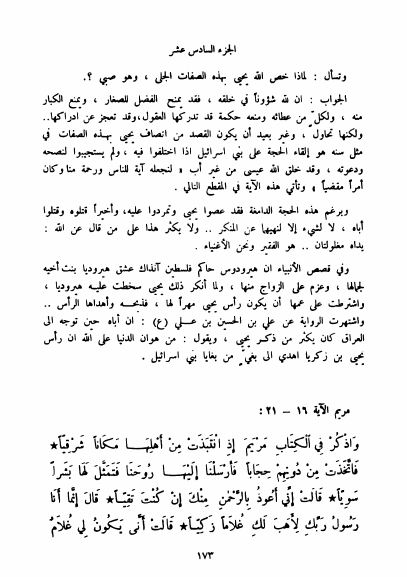 الجزء السادس عشر
وتسأل : لماذا خص الله يحيى بهذه الصفات الجلى ، وهو صبي ؟.
الجواب : ان لله شؤوناً في خلقه ، فقد يمنح الفضل للصغار ، ويمنع الكبار
منه ، ولكل من عطائه ومنعه حكمة قد تدركها العقول،وقد تعجز عن ادراكها..
ولكنها تحاول ، وغير بعيد أن يكون القصد من اتصاف يحيى بهذه الصفات في
مثل سنه هو إلقاء الحجة على بني اسرائيل اذا اختلفوا فيه ، ولم يستجيبوا لنصحه
ودعوته ، وقد خلق الله عيسى من غير أب « لنجعله آية للناس ورحمة منا وكان
أمراً مقضياً » وتأتي هذه الآية في المقطع التالي .
وبرغم هذه الحجة الدامغة فقد عصوا يحيى وتمردوا عليه،وأخيراً قتلوه وقتلوا
أباه ، لا لشيء إلا لنهيها عن المنكر .. ولا يكثر هذا على من قال عن الله :
يداه مغلولتان .. هو الفقير ونحن الأغنياء .
وفي قصص الأنبياء ان هيرودوس حاكم فلسطين آنذاك عشق هيروديا بنت أخيه
لجمالها ، وعزم على الزواج منها ، ولما أنكر ذلك يحيى سخطت عليه هيروديا ،
واشترطت على عمها أن يكون رأس يحيى مهراً لها ، فذبحه وأهداها الرأس ..
واشتهرت الرواية عن علي بن الحسين بن علي (ع) : ان أباه حين توجه الى
العراق كان يكثر من ذكر يحيى ، ويقول : من هوان الدنيا على الله ان رأس
يحيى بن زكريا اهدي الى بغيّ من بغايا بني اسرائيل .
مريم الآية ١٦ – ٢١ :
وَاذْكُرْ فِي الْكِتَابِ مَرْيَمَ إِذِ انْتَبَذَتْ مِنْ أَهْلِهَا مَكَانًا شَرْقِيًّا★
فَاتَّخَذَتْ مِنْ دُونِهِمْ حِجَابًا فَأَرْسَلْنَا إِلَيْهَا رُوحَنَا فَتَمَثَّلَ لَهَا بَشَرًا
سَوِيًّا★ قَالَتْ إِنِّي أَعُوذُ بِالرَّحْمَنِ مِنْكَ إِنْ كُنْتَ تَقِيًّا★ قَالَ إِنَّمَا أَنَا
رَسُولُ رَبِّكِ لِأَهَبَ لَكِ غُلَامًا زَكِيًّا★ قَالَتْ أَنَّى يَكُونُ لِي غُلَامٌ
١٧٣